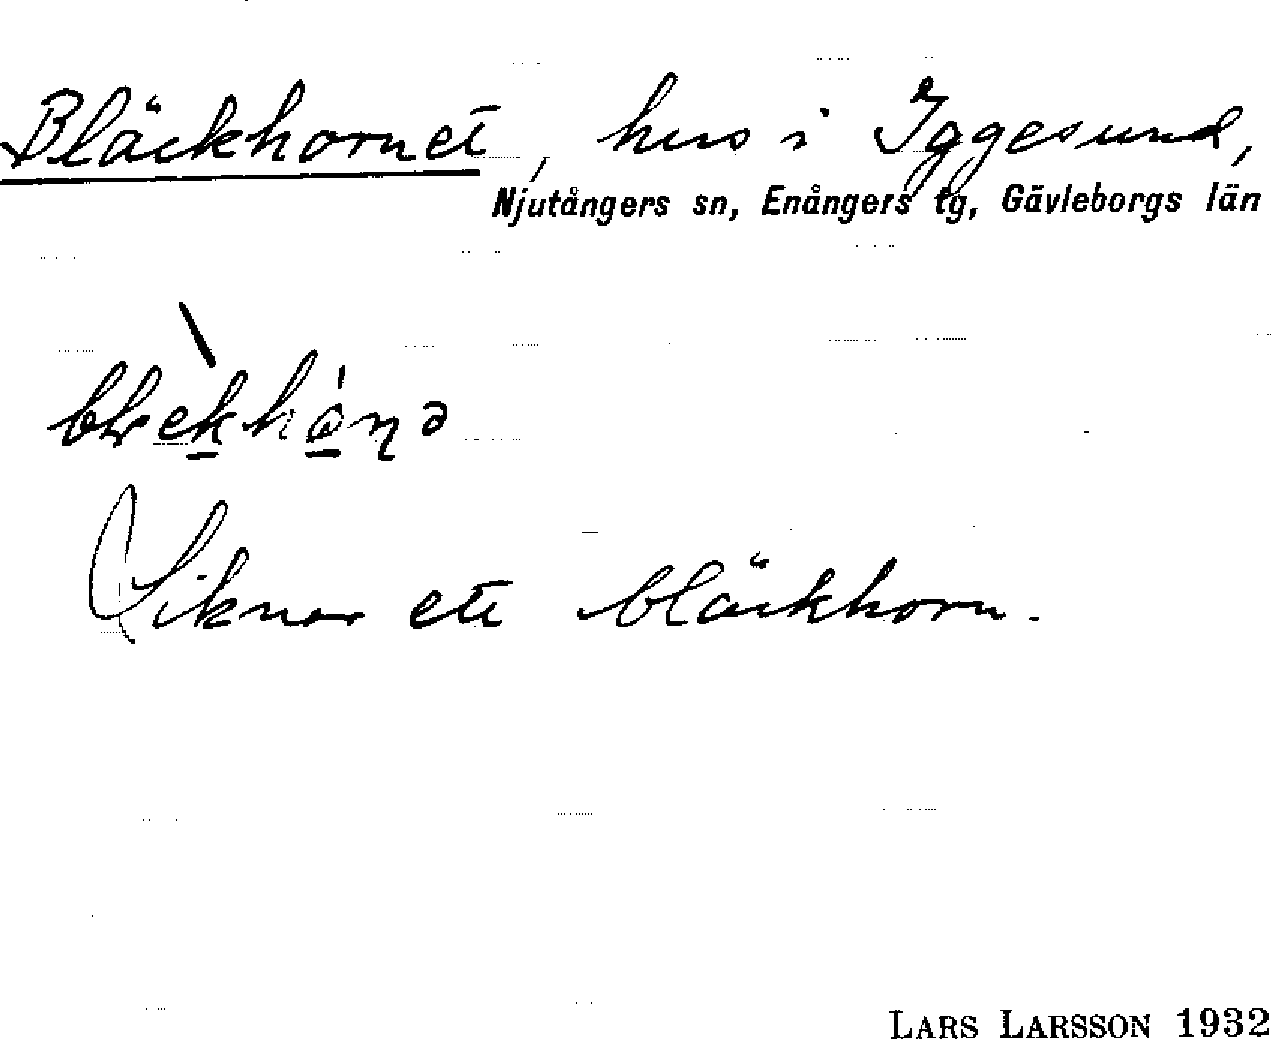 Bläckhornet, hus i Iggesund,
Njutångers sn, Enångers tg, Gävleborgs län
Liknar ett bläckhorn.
LARS LARSSON 1932